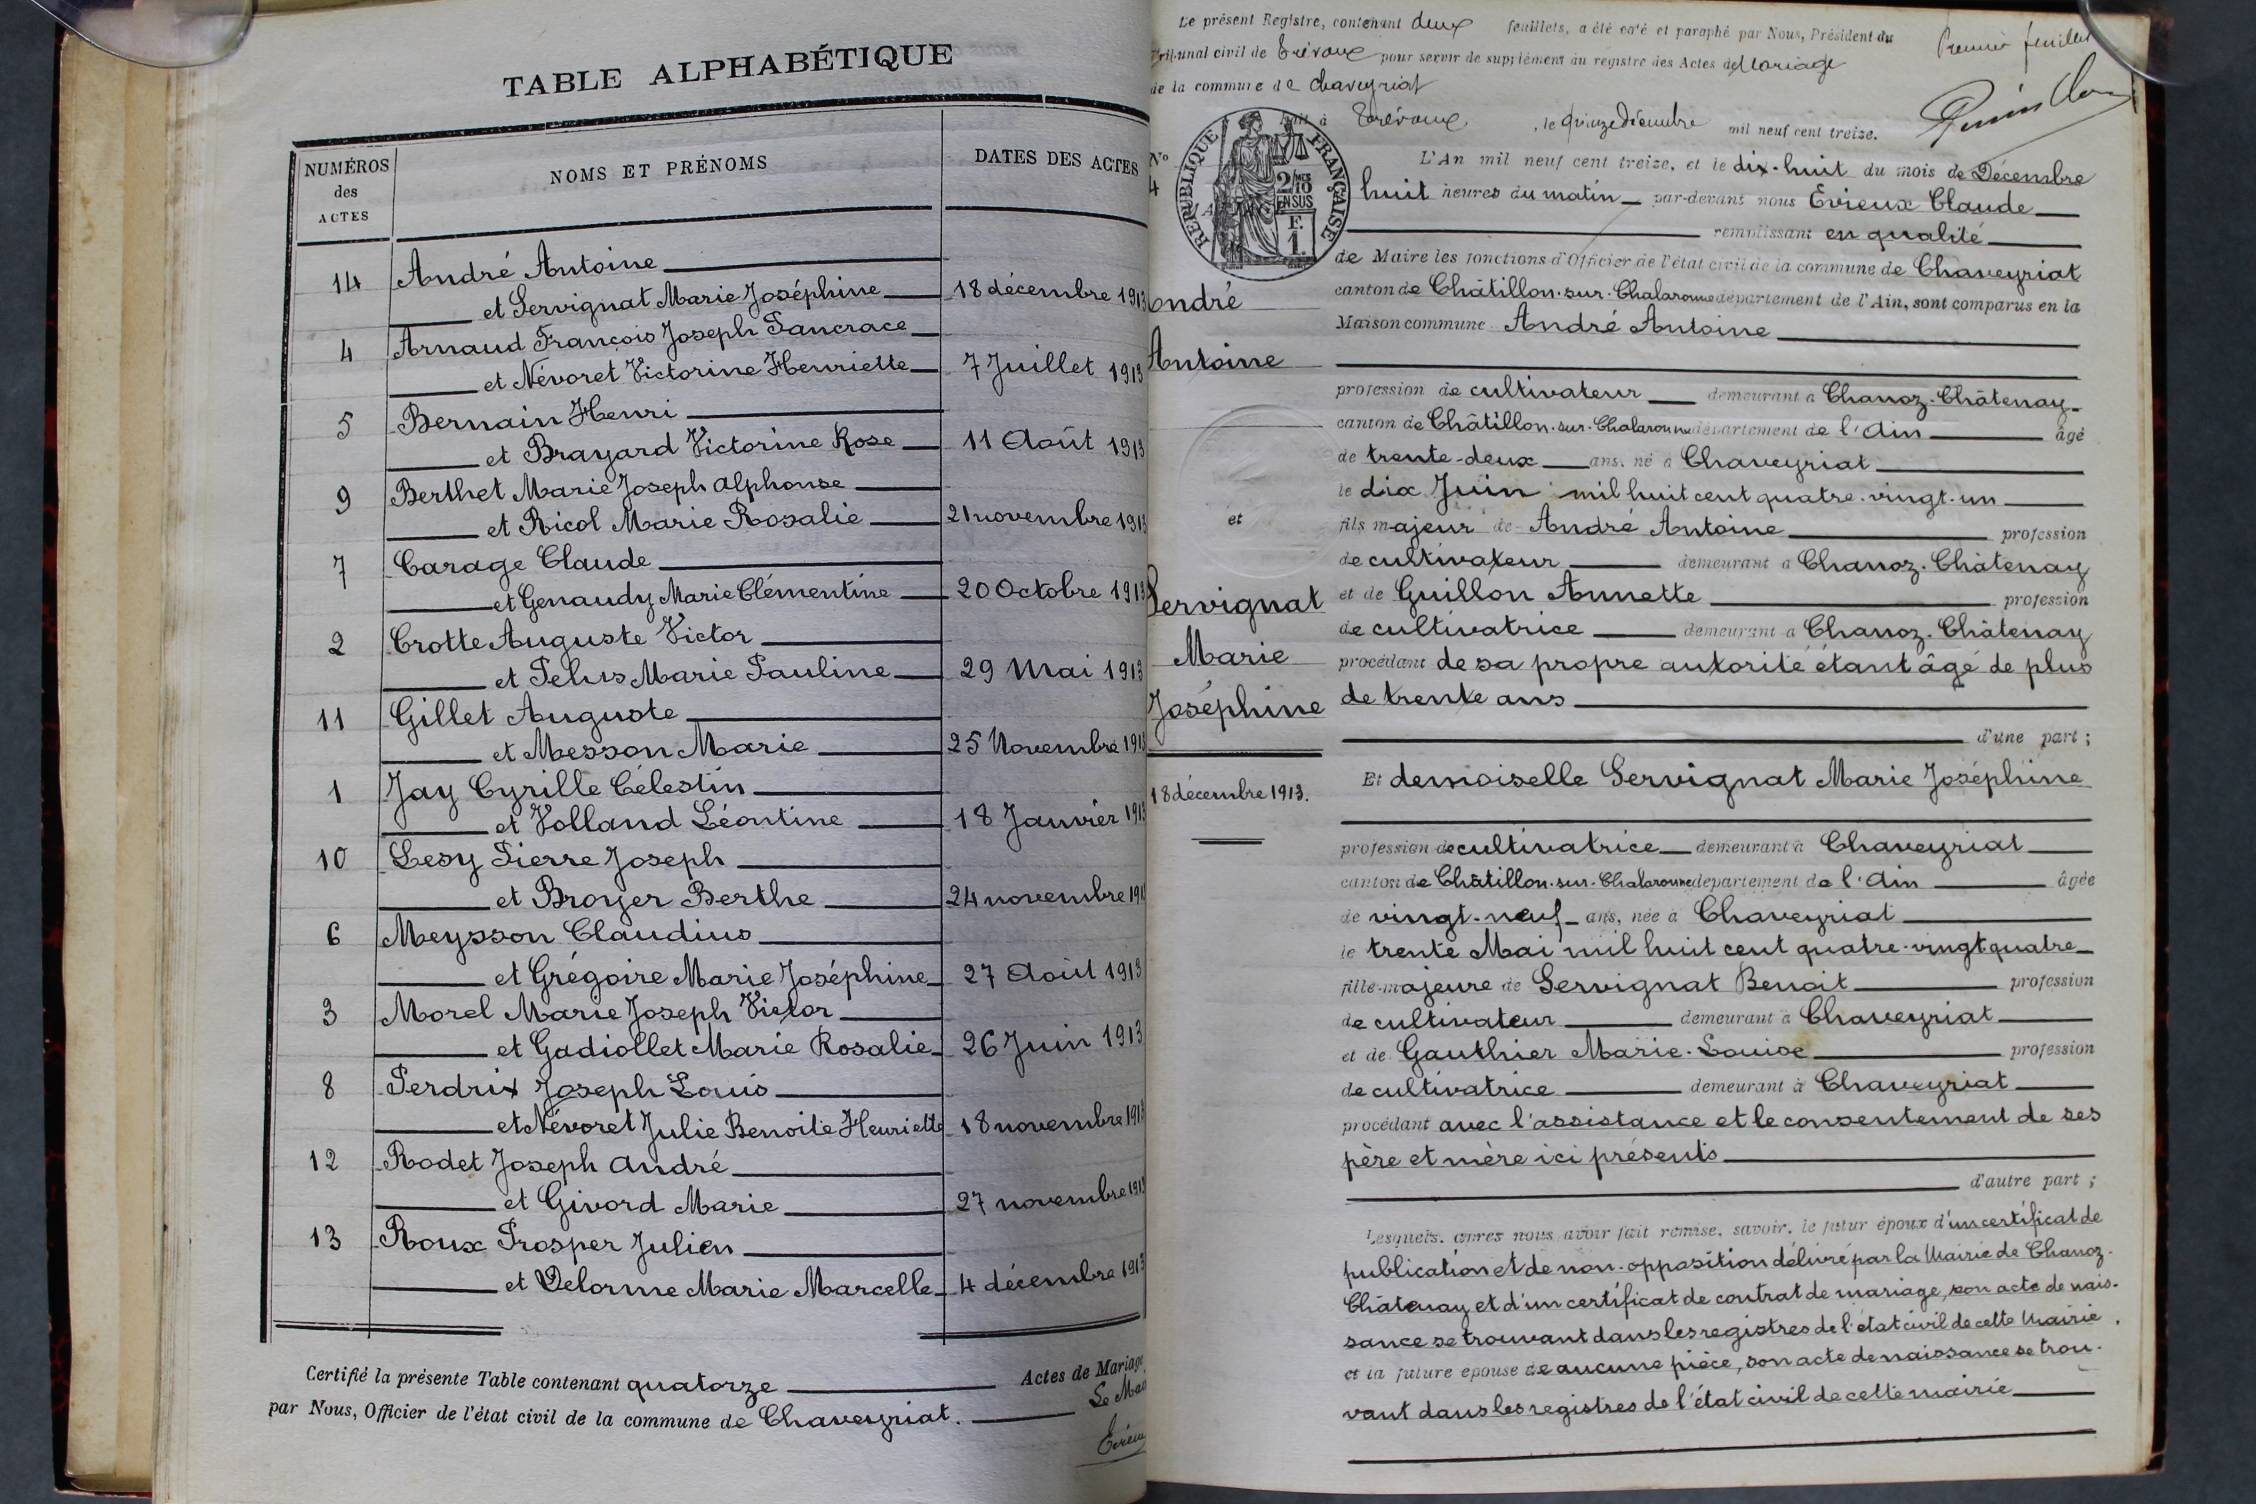 TABLE ALPHABÉTIQUE
NUMÉROS des ACTES
NOMS ET PRÉNOMS
DATES DES ACTES
14 André Antoine
et Servignat Marie Joséphine 18 décembre 1913
4 Arnaud François Joseph Pancrace
et Névoret Victorine Henriette 7 Juillet 1913
5 Bernain Henri
et Brayard Victorine Rose 11 Août 1913
9 Berthet Marie Joseph Alphonse
et Ricol Marie Rosalie 21 novembre 1913
7 Carage Claude
et Genaudy Marie Clémentine 20 Octobre 1913
2 Crotte Auguste Victor
et Marie Pauline 29 Mai 1913
11 Gillet Auguste
et Messon Marie 25 Novembre 1913
1 Jay Cyrille Célestin
et Volland Léontine 18 Janvier 1913
10 Lesy Pierre Joseph
et Broyer Berthe 24 novembre 191
6 Meysson Claudius
et Grégoire Marie Joséphine 27 Août 1913
3 Morel Marie Joseph Victor
et Gadiollet Marie Rosalie 26 Juin 1913
8 Perdrix Joseph Louis
et Névoret Julie Benoite Henriette 18 novembre 1913
12 Rodet Joseph André
et Givord Marie 27 novembre 1913
13 Roux Prosper Julien
et Delorme Marie Marcelle 4 décembre 1913
Certifié la présente Table contenant quatorze Actes de Mariage
par Nous, Officier de l'état civil de la commune de Chaveyriat. Le Ma
Le présent Registre, contenant deux feuillets, a été coté et paraphé par Nous, Président du
Tribunal civil de Trévoux pour servir de supplément au registre des Actes de Mariage
de la commune de Chaveyriat
Premier feuillet
Fait à Trévoux, le quinze Décembre mil neuf cent treize.
RÉPUBLIQUE FRANÇAISE
2/10 EN SUS
F. 1.
No
4
André
Antoine
et
Servignat
Marie
Joséphine
18 décembre 1913.
L'An mil neuf cent treize, et le dix-huit du mois de Décembre
huit heures du matin par-devant nous Evieux Claude
remplissant en qualité
de Maire les fonctions d'Officier de l'état civil de la commune de Chaveyriat
canton de Châtillon-sur-Chalaronne département de l'Ain, sont comparus en la
Maison commune André Antoine
profession de cultivateur demeurant à Chanoz-Châtenay
canton de Châtillon-sur-Chalaronne département de l'Ain âgé
de trente-deux ans, né à Chaveyriat
le dix Juin mil huit cent quatre-vingt-un
fils majeur de André Antoine profession
de cultivateur demeurant à Chanoz-Châtenay
et de Guillon Annette profession
de cultivatrice demeurant à Chanoz-Châtenay
procédant de sa propre autorité étant âgé de plus
de trente ans
d'une part ;
Et demoiselle Servignat Marie Joséphine
profession de cultivatrice demeurant à Chaveyriat
canton de Châtillon-sur-Chalaronne département de l'Ain âgée
de vingt-neuf ans, née à Chaveyriat
le trente Mai mil huit cent quatre-vingt quatre
fille majeure de Servignat Benoit profession
de cultivateur demeurant à Chaveyriat
et de Gauthier Marie-Louise profession
de cultivatrice demeurant à Chaveyriat
procédant avec l'assistance et le consentement de ses
père et mère ici présents
d'autre part ;
Lesquels, après nous avoir fait remise, savoir, le futur époux d'un certificat de
publication et de non-opposition délivré par la Mairie de Chanoz-
Châtenay et d'un certificat de contrat de mariage, son acte de nais-
sance se trouvant dans les registres de l'état civil de cette Mairie,
et la future épouse de aucune pièce, son acte de naissance se trou-
vant dans les registres de l'état civil de cette mairie